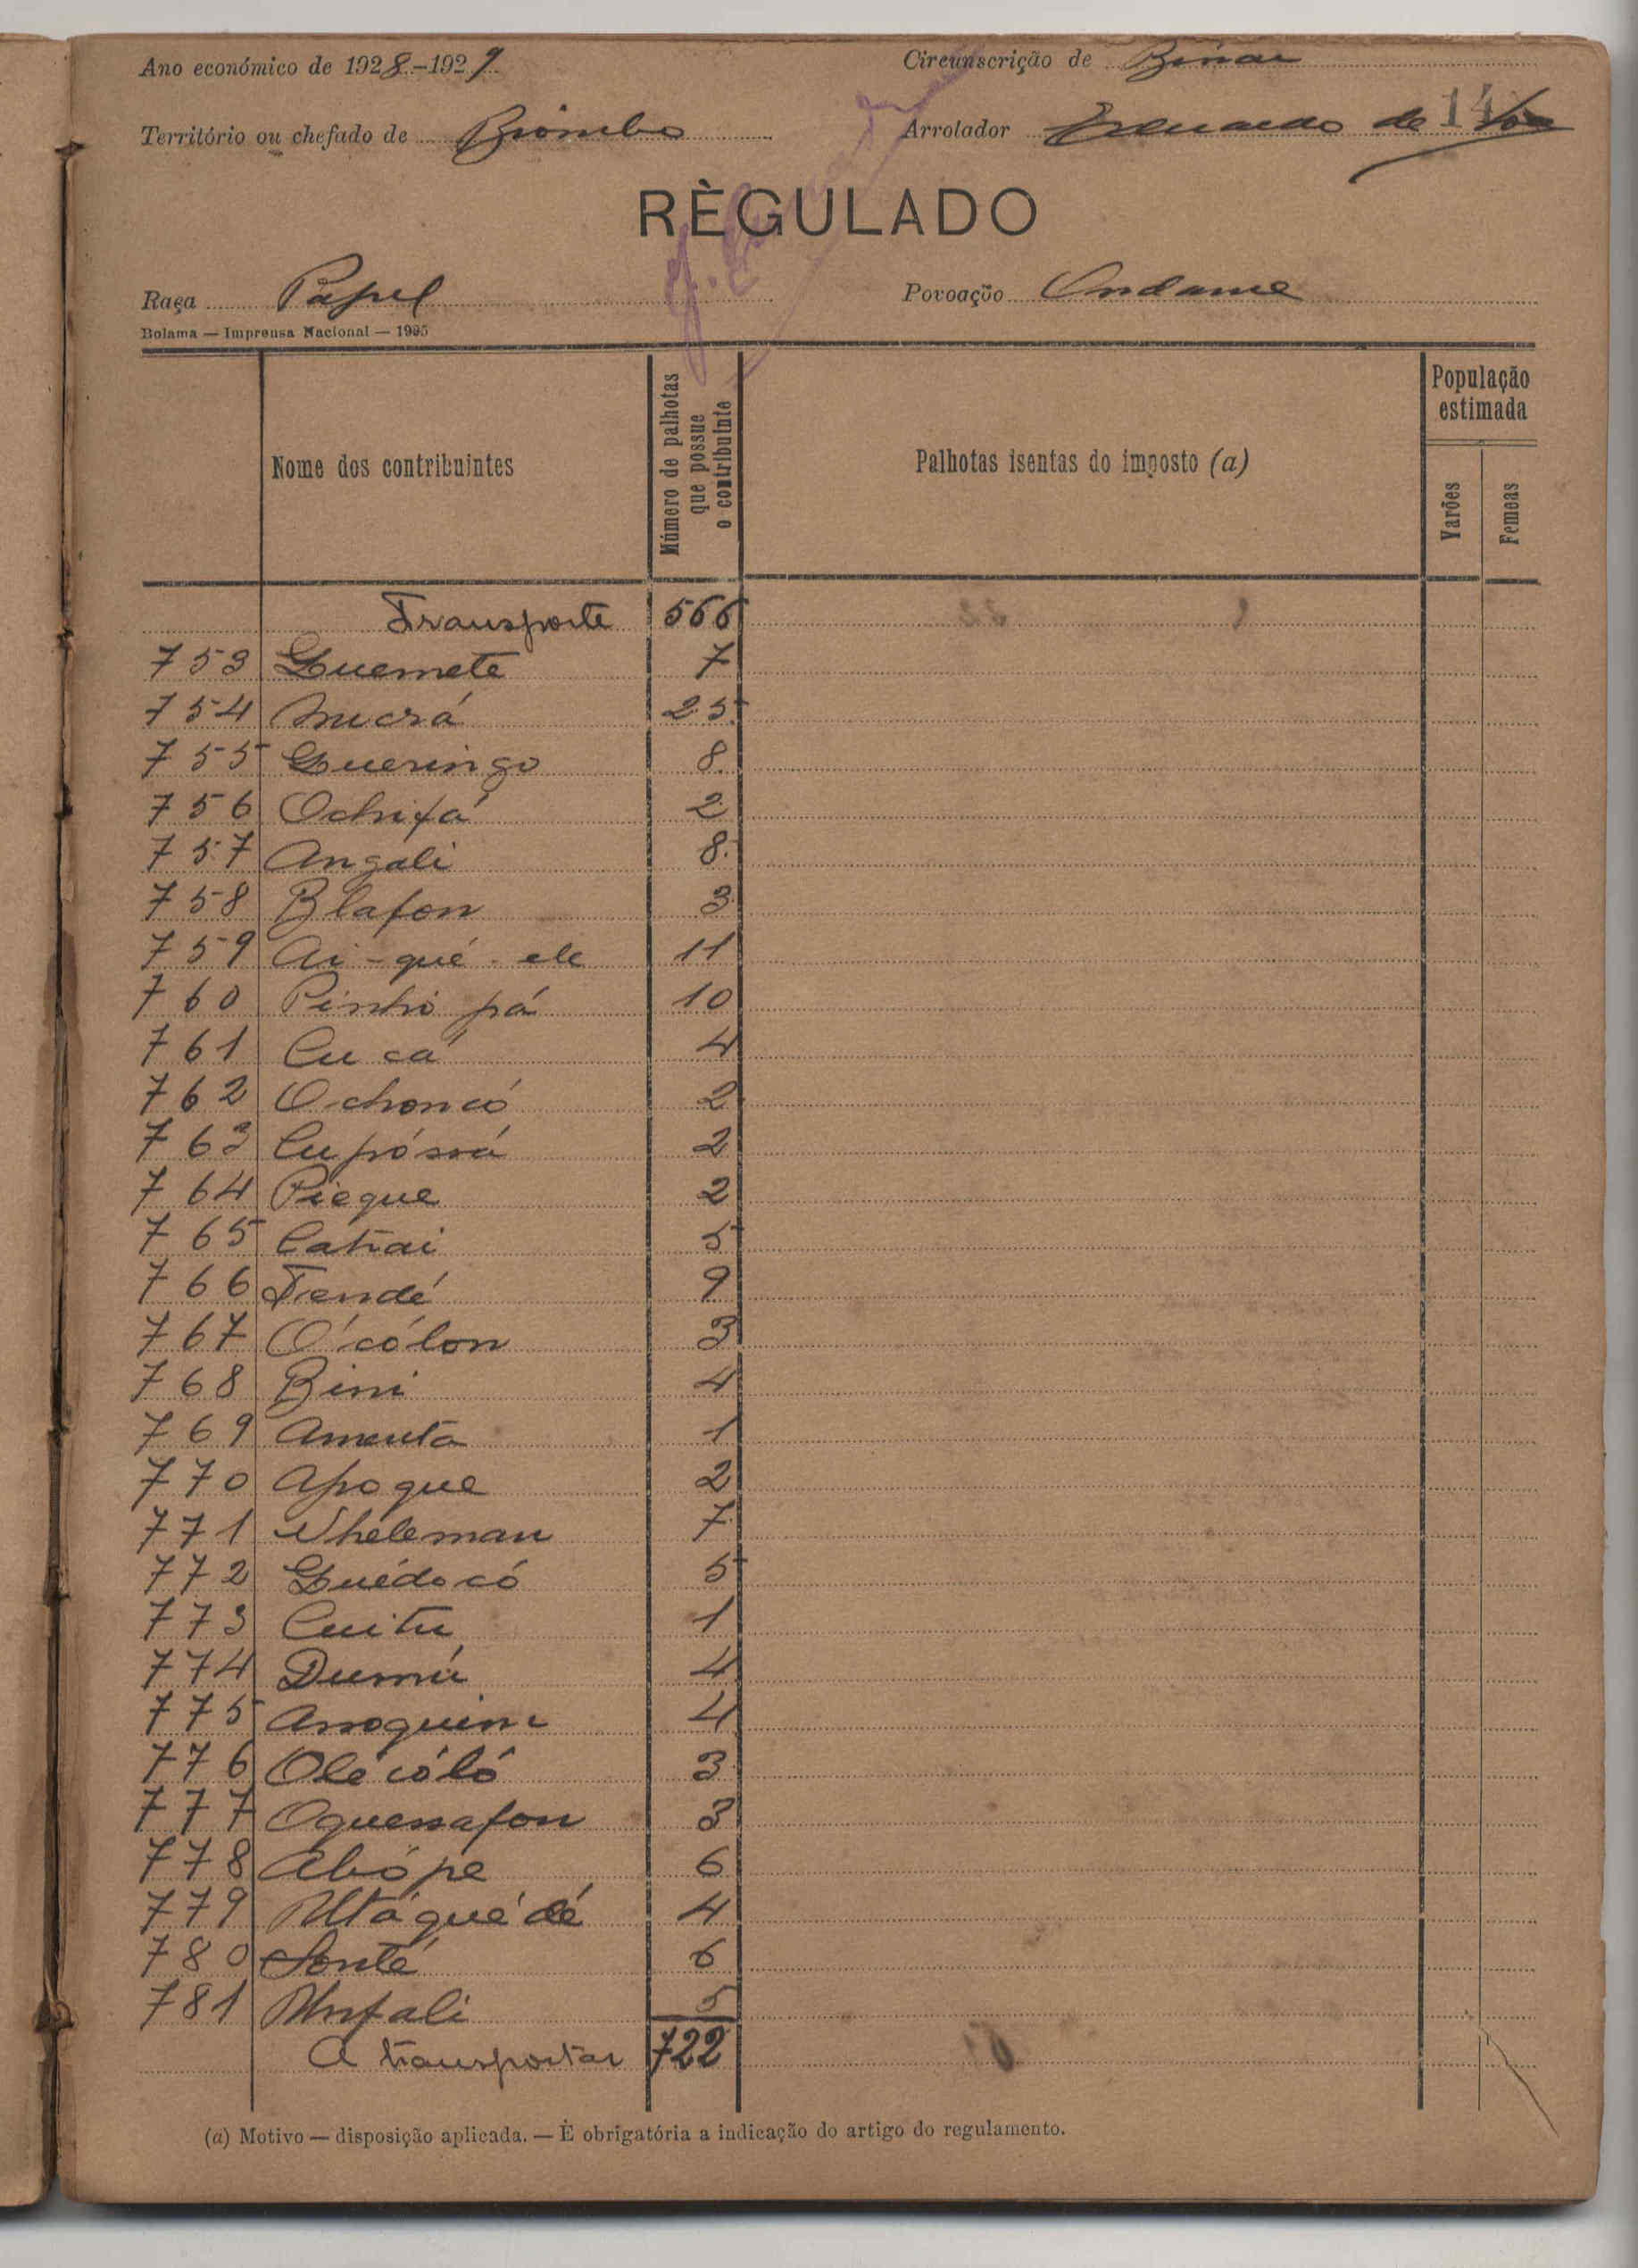 Ano económico de 1928-1929 Circunscrição de
Território ou chefado de Biombo Arrolador de
14
RÈGULADO
Raça Papel Povoação Ondame
Bolama — Imprensa Nacional — 1925
Nome dos contribuintes
Número de palhotas
que possue
o contribuinte
Palhotas isentas do imposto (a)
População
estimada
Varões
Femeas
Transporte 566
753 Guemete 7
754 25
755 Gueringo 8
756 Ochifá 2
757 Angali 8
758 Blafon 3
759 Ai-qué-ele 11
760 Pinhi pá 10
761 Cu cá 4
762 Ochoncó 2
763 Cupóssá 2
764 Pieque 2
765 Catrai 5
766 Tendé 9
767 O'cólon 3
768 Bini 4
769 Amenta 1
770 Apoque 2
771 Nheleman 7
772 Guédocó 5
773 Cuitu 1
774 Dumú 4
775 4
776 Olé cóló 3
777 Oquessafon 3
778 Abópe 6
779 4
780 Sonté 6
781 5
A transportar 722
(a) Motivo — disposição aplicada. — È obrigatória a indicação do artigo do regulamento.